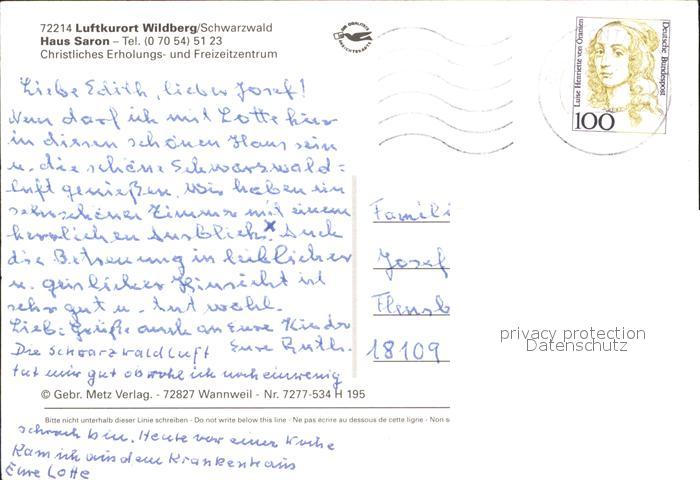 72214 Luftkurort Wildberg/Schwarzwald
Haus Saron – Tel. (0 70 54) 51 23
Christliches Erholungs- und Freizeitzentrum
Liebe Edith, lieber Josef!
Nun darf ich mit Lotte hier
in diesem schönen Haus sein
u. die schöne Schwarzwald=
luft genießen. Wir haben ein
sehr schönes Zimmer mit einem
herrlichen Ausblick. x Auch
die Betreuung in leiblicher
u. geistlicher Hinsicht ist
sehr gut u. tut wohl.
Liebe Grüße auch an Eure Kinder
Eure Ruth.
Die Schwarzwaldluft
tut mir gut obwohl ich noch ein wenig
© Gebr. Metz Verlag. - 72827 Wannweil - Nr. 7277-534 H 195
Bitte nicht unterhalb dieser Linie schreiben - Do not write below this line - Ne pas écrire au dessous de cette ligne - Non s
schwach bin. Heute vor einer Woche
kam ich aus dem Krankenhaus
Eure Lotte
Luise Henriette von Oranien
Deutsche Bundespost
100
Famili
Josef
Flensb
18109
privacy protection
Datenschutz